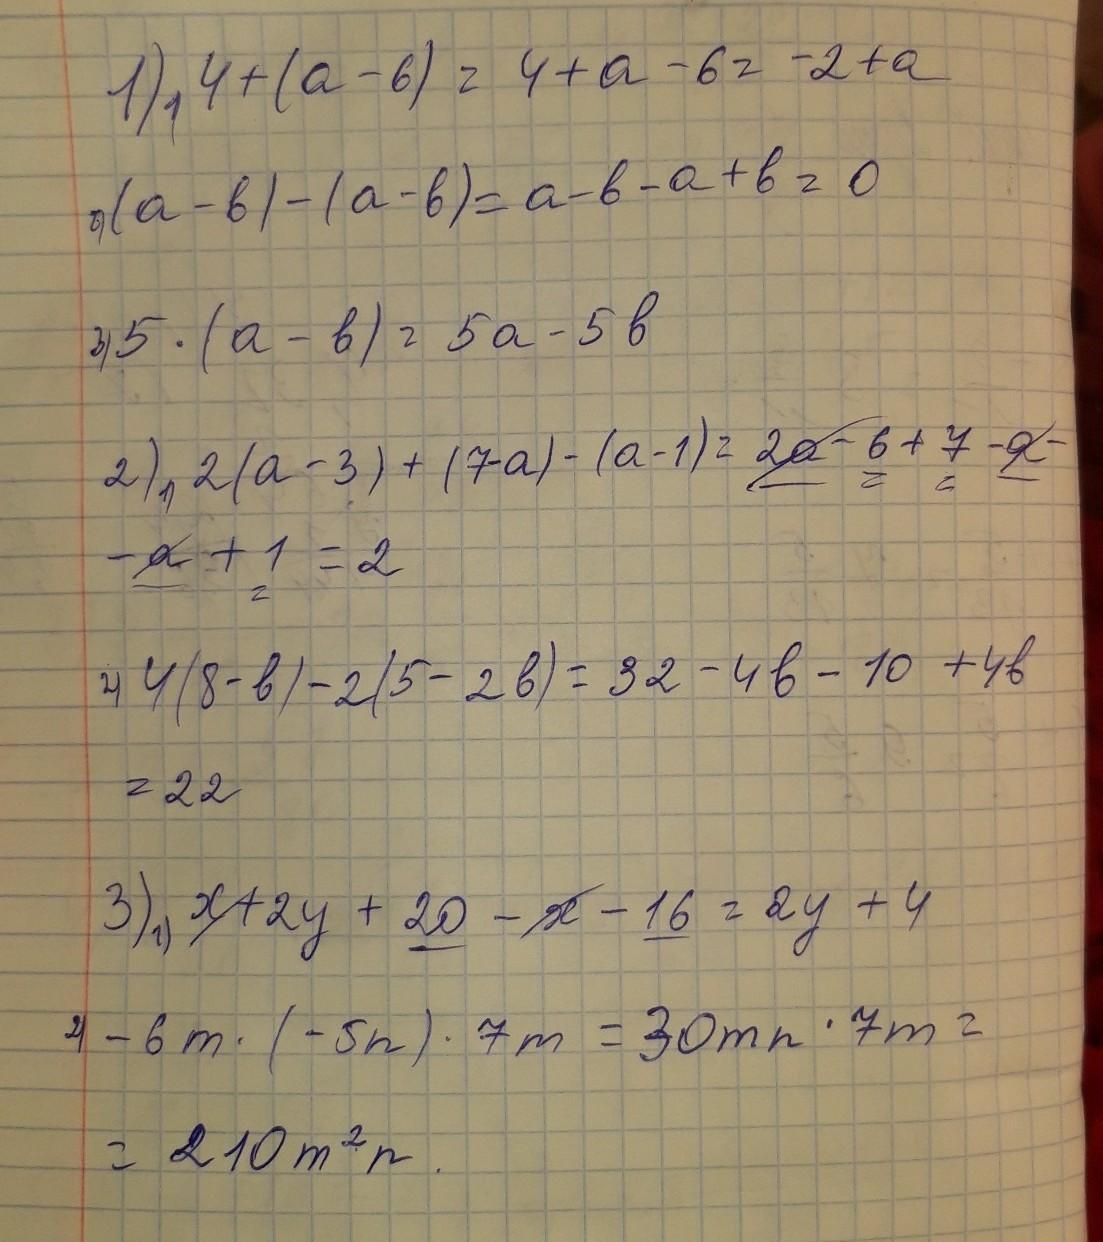 1) 1) 4+(a-6) = 4+a-6 = -2+a
2) (a-b)-(a-b) = a-b-a+b = 0
3) 5·(a-b) = 5a-5b
2) 1) 2(a-3)+(7-a)-(a-1) = 2a-6+7-a-
-a+1 = 2
2) 4(8-b)-2(5-2b) = 32-4b-10+4b
= 22
3) 1) x+2y+20-x-16 = 2y+4
2) -6m·(-5n)·7m = 30mn·7m =
= 210m²n.